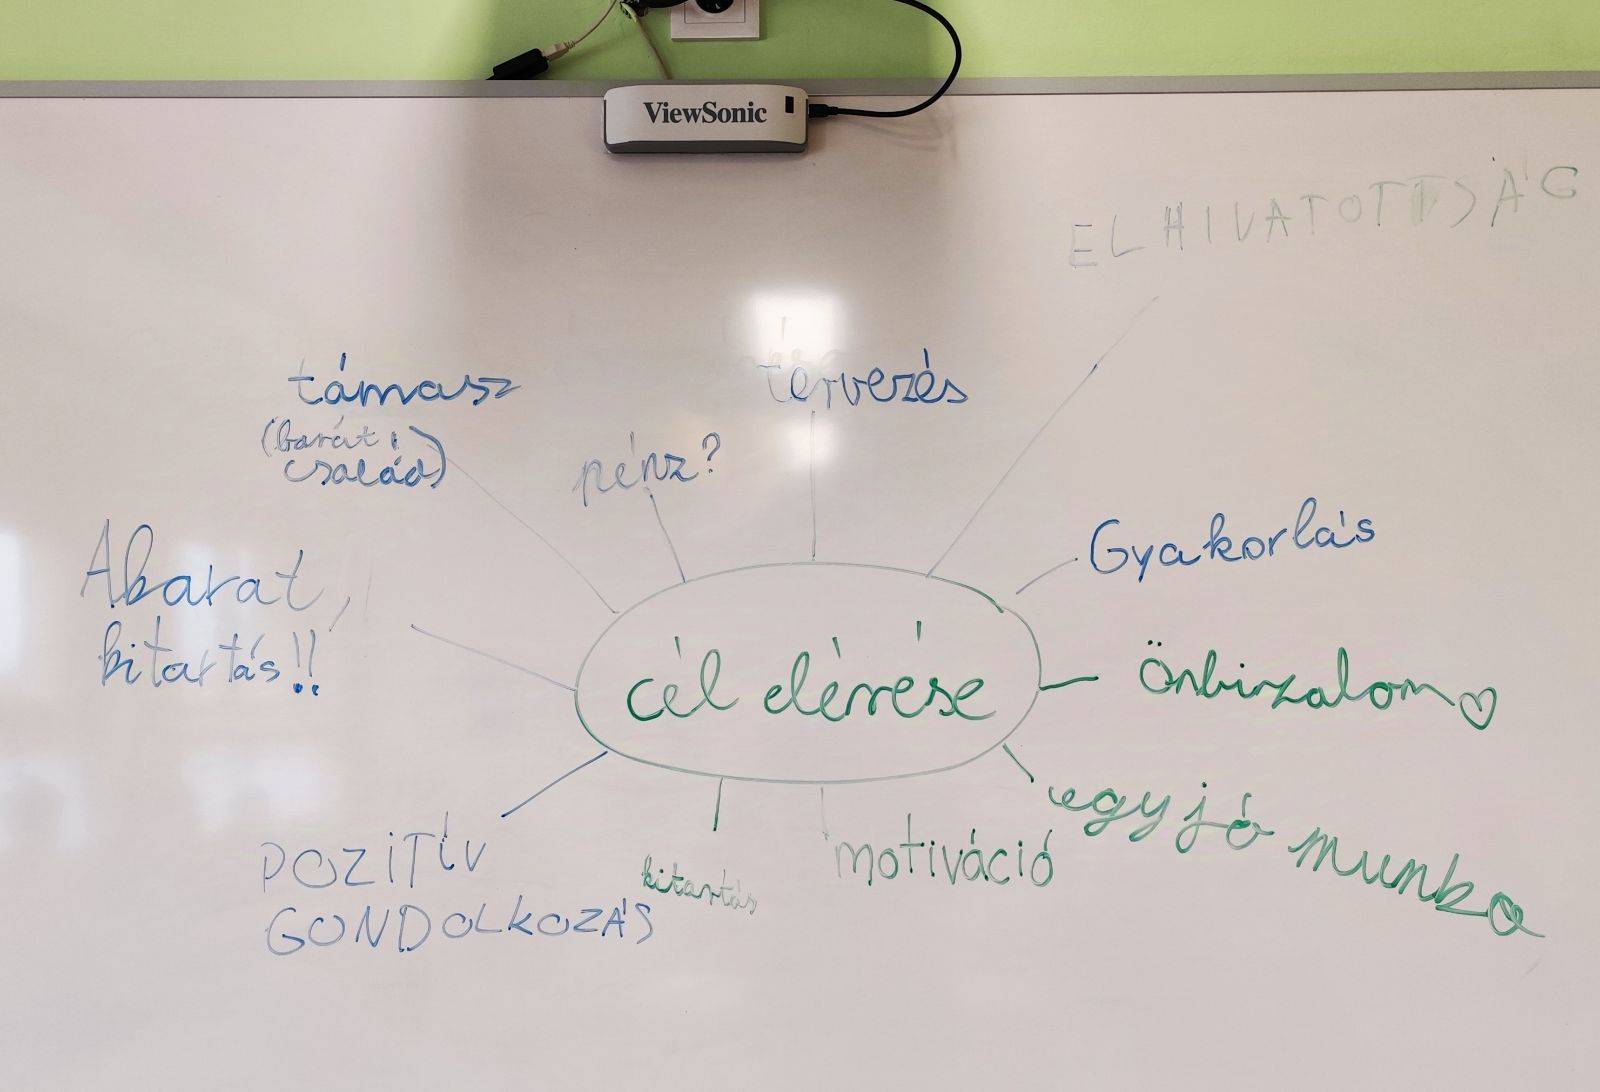 ViewSonic
ELHIVATOTTSÁG
támasz
(barát,
család)
pénz?
tervezés
Gyakorlás
Akarat,
kitartás!!
cél elérése
Önbizalom♡
egy jó munka
POZITÍV
GONDOLKOZÁS
kitartás
motiváció